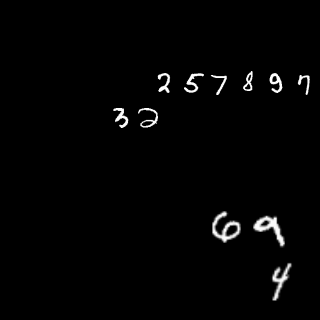 257897
32
69
4